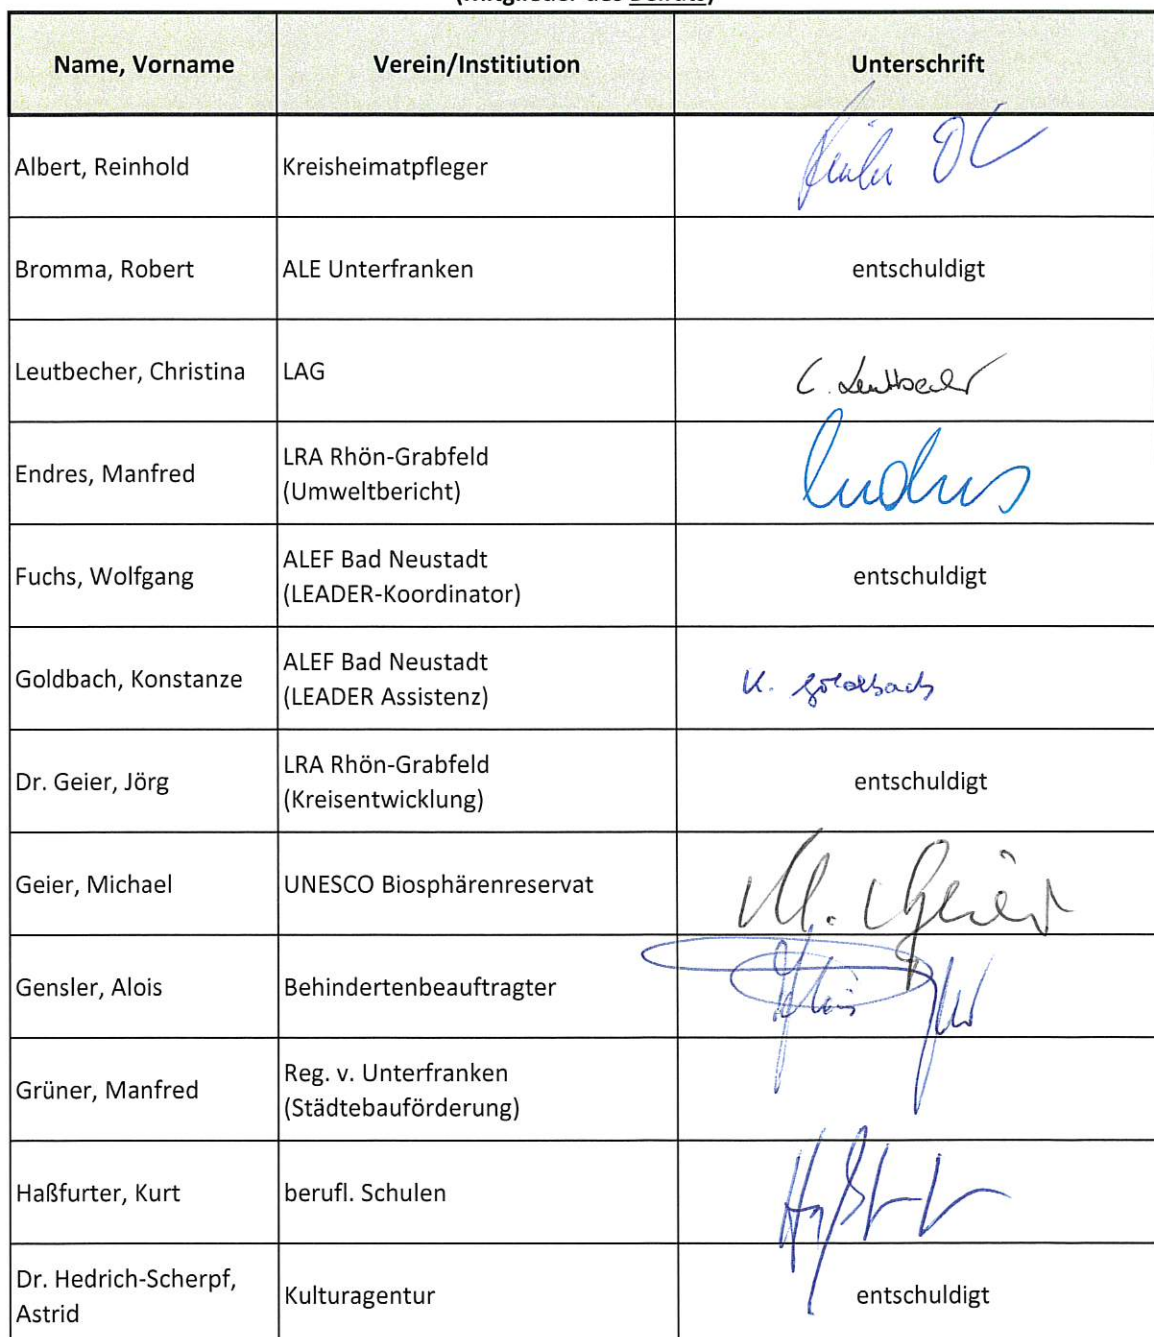 (Mitglieder des Beirats)
Name, Vorname Verein/Institiution Unterschrift
Albert, Reinhold Kreisheimatpfleger
Bromma, Robert ALE Unterfranken entschuldigt
Leutbecher, Christina LAG C. Leutbecher
Endres, Manfred LRA Rhön-Grabfeld
(Umweltbericht) Endres
Fuchs, Wolfgang ALEF Bad Neustadt
(LEADER-Koordinator) entschuldigt
Goldbach, Konstanze ALEF Bad Neustadt
(LEADER Assistenz) K. Goldbach
Dr. Geier, Jörg LRA Rhön-Grabfeld
(Kreisentwicklung) entschuldigt
Geier, Michael UNESCO Biosphärenreservat M. Geier
Gensler, Alois Behindertenbeauftragter
Grüner, Manfred Reg. v. Unterfranken
(Städtebauförderung)
Haßfurter, Kurt berufl. Schulen
Dr. Hedrich-Scherpf,
Astrid Kulturagentur entschuldigt